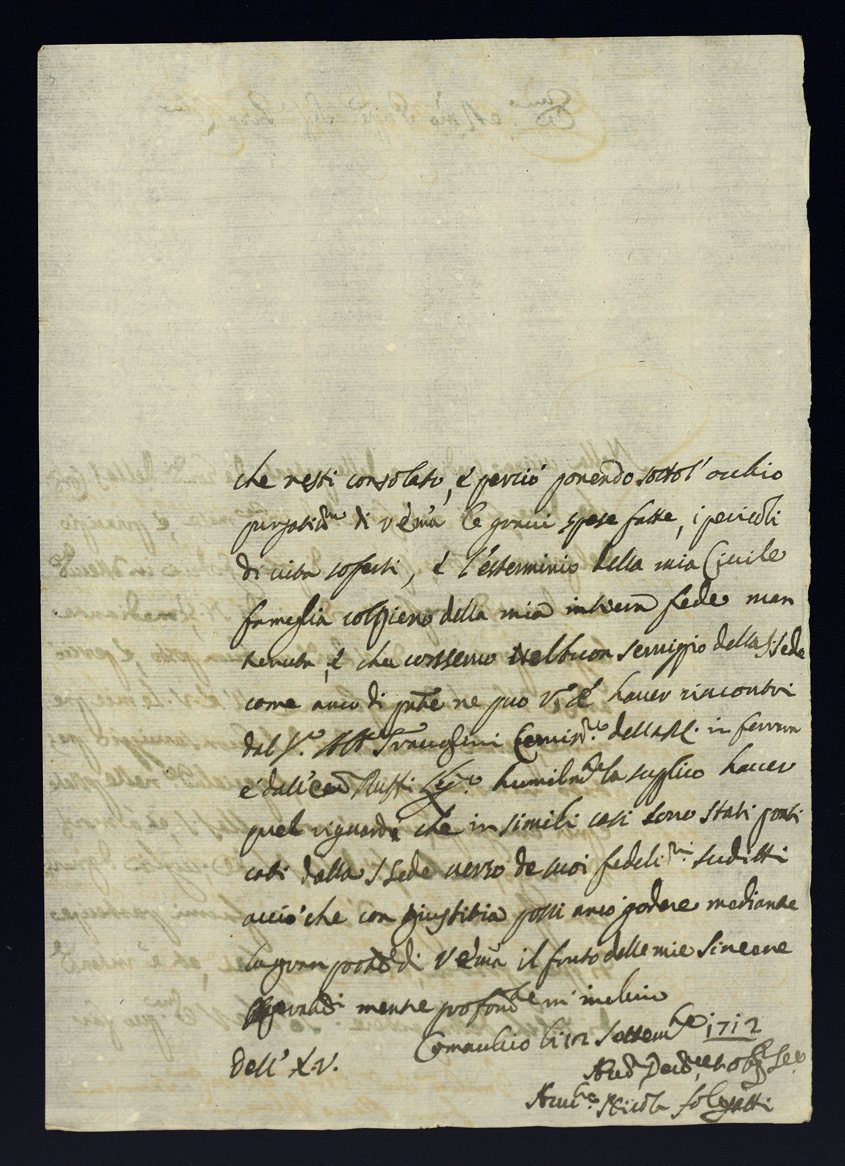 che resti consolato, é perció ponendo sotto l'occhio
purgatis.mo di V.Em.a le gravi spese fatte, i pericoli
di vita soferti, é l'esterminio della mia Civile
famiglia colpieno della mia intiera fede man
tenuta, é che conservo nel buon servizio della S Sede
come anco di pnte ne puo V.E. haver rincontri
dal S.r Abb. Comis.rio della R.C. in ferrara
é dall'Em.o Ruffi Leg.to humilm.te la suplico haver
quel riguardo che in simili casi sono stati prati
cati dalla S Sede verso de suoi fedeli.mi sudditti
acció che con giustitia possi anco godere mediante
la gran prot.e di V.Em.a il frutto delle mie sincere
mentre profond.te m'inchino
Dell' E.V.
Comacchio li 12 Settemb.e 1712
Hum.o Devo.mo et obl.mo Se.re
Nicola folegatti